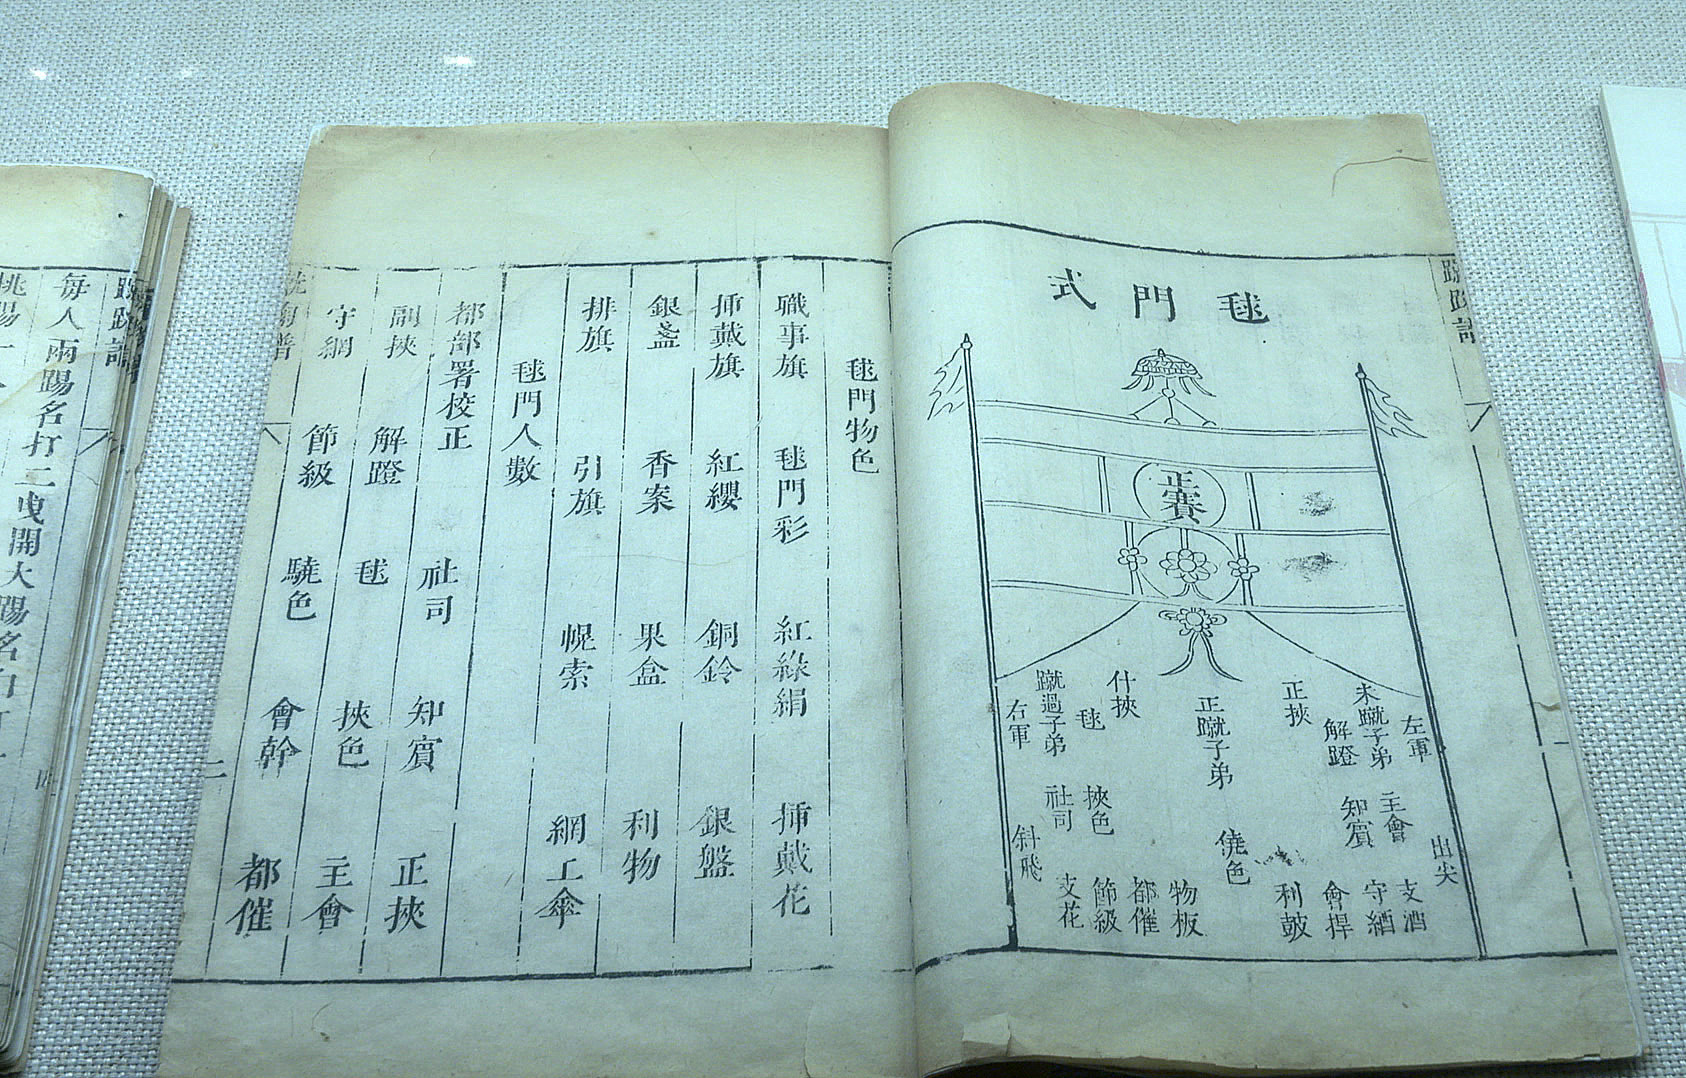 毬門式
正賽
左軍
未蹴子弟
解蹬
正挾
正蹴子弟
什挾
毬
蹴過子弟
右軍
主會
知賓
挾色
社司
斜飛
出尖
僥色
支酒
守網
會捍
利皷
物板
都催
節級
支花
毬門物色
職事旗 毬門彩 紅綠絹 挿戴花
挿戴旗 紅纓 銅鈴 銀盤
銀盞 香案 果盒 利物
排旗 引旗 幌索 網工傘
毬門人數
都部署校正 社司 知賓 正挾
副挾 解蹬 毬 挾色 主會
守網 節級 驍色 會幹 都催
二
每人兩踢名打二曳開大踢名